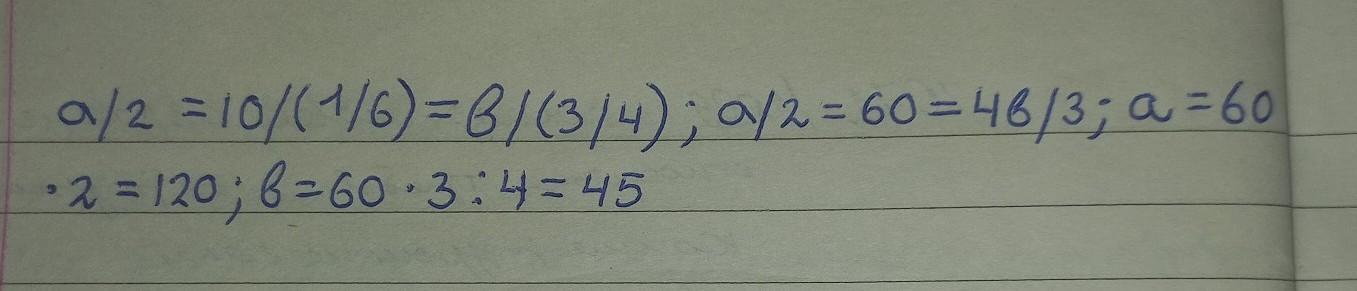 a/2 = 10/(1/6) = в/(3/4); a/2 = 60 = 4в/3; a = 60
· 2 = 120; в = 60 · 3 : 4 = 45